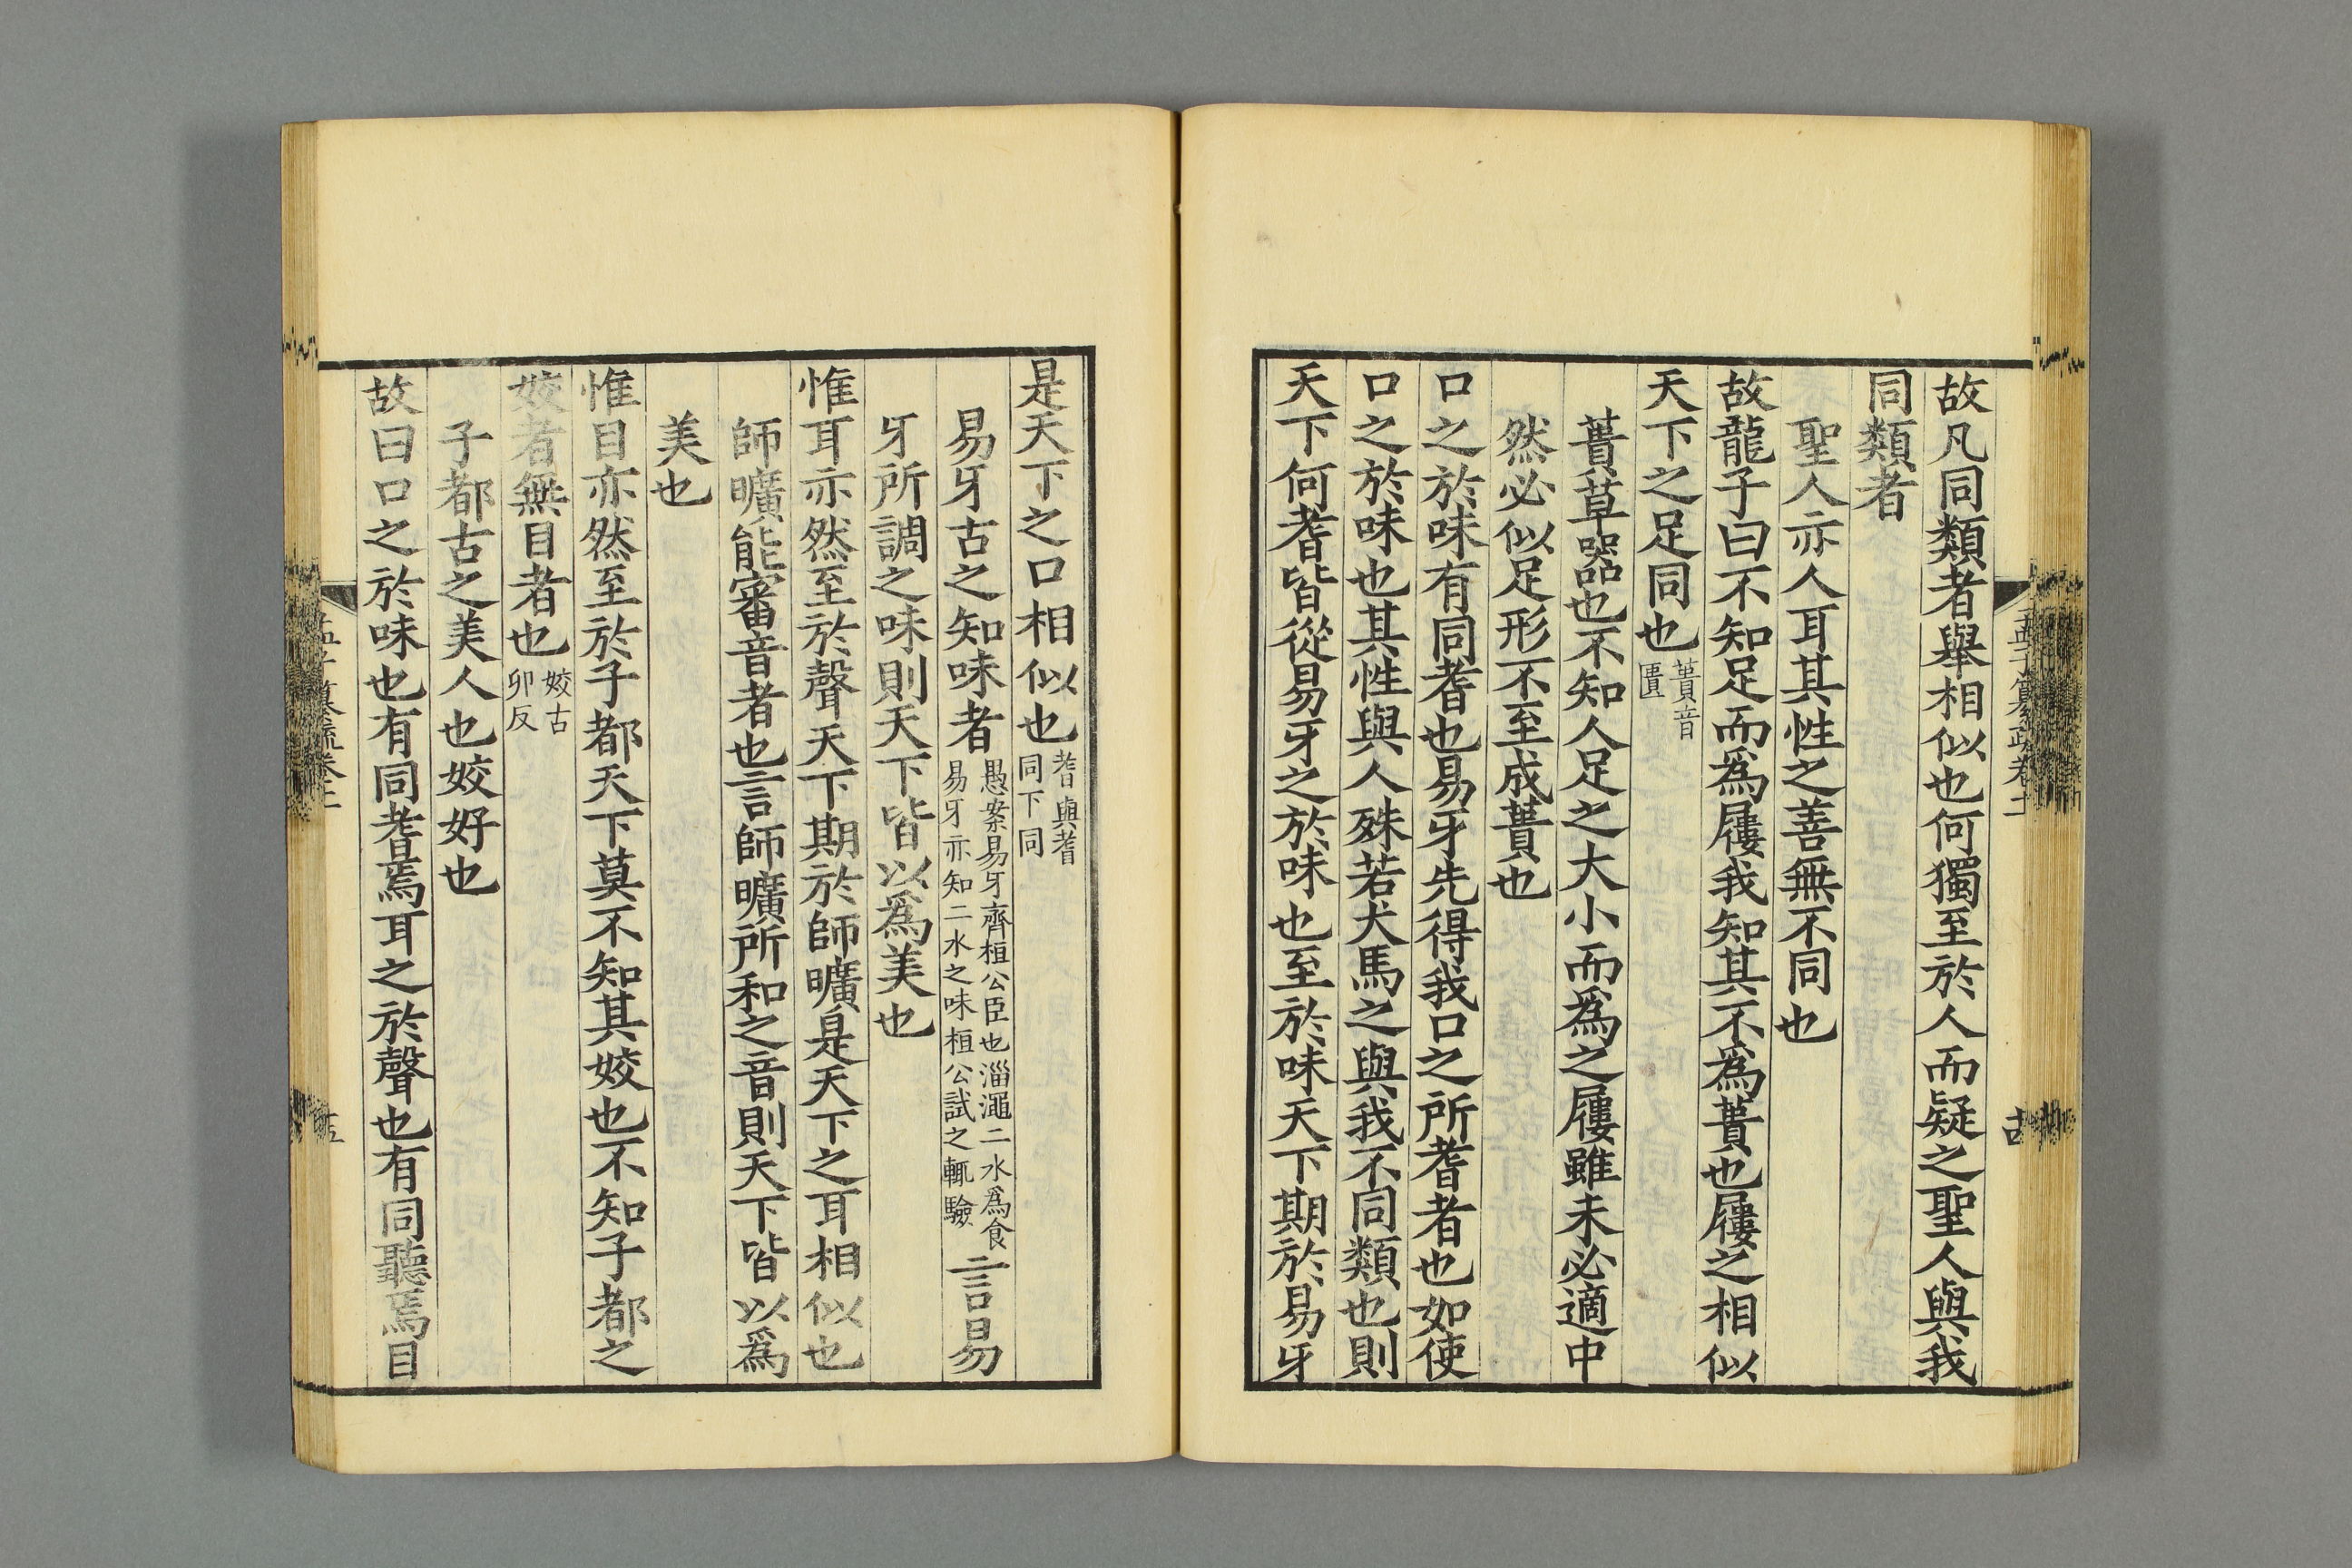 故凡同類者舉相似也何獨至於人而疑之聖人與我
同類者
聖人亦人耳其性之善無不同也
故龍子曰不知足而爲屨我知其不爲蕢也屨之相似
天下之足同也蕢音匱
蕢草器也不知人足之大小而爲之屨雖未必適中
然必似足形不至成蕢也
口之於味有同耆也易牙先得我口之所耆者也如使
口之於味也其性與人殊若犬馬之與我不同類也則
天下何耆皆從易牙之於味也至於味天下期於易牙
是天下之口相似也耆與嗜同下同
易牙古之知味者愚案易牙齊桓公臣也淄澠二水爲食易牙亦知二水之味桓公試之輒驗言易
牙所調之味則天下皆以爲美也
惟耳亦然至於聲天下期於師曠是天下之耳相似也
師曠能審音者也言師曠所和之音則天下皆以爲
美也
惟目亦然至於子都天下莫不知其姣也不知子都之
姣者無目者也姣古卯反
子都古之美人也姣好也
故曰口之於味也有同耆焉耳之於聲也有同聽焉目